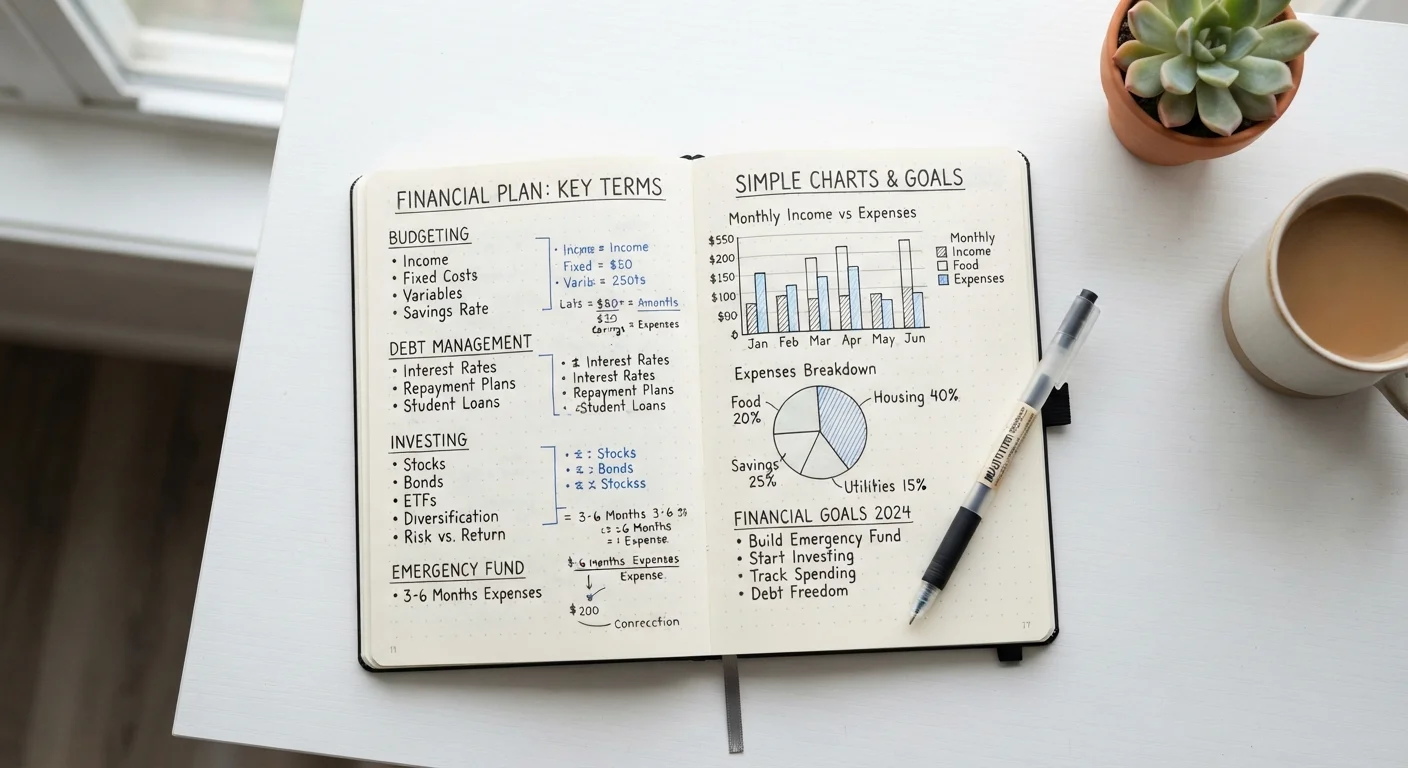 FINANCIAL PLAN: KEY TERMS
BUDGETING
• Income
• Fixed Costs
• Variables
• Savings Rate
= Income
Fixed = $50
= 250ts
= Expenses
DEBT MANAGEMENT
• Interest Rates
• Repayment Plans
• Student Loans
Interest Rates
• Interest Rates
• Repayment Plans
Student Loans
INVESTING
• Stocks
• Bonds
• ETFs
• Diversification
• Risk vs. Return
: Stocks
: Bonds
Stockss
= 3-6 Months
6 Months
Expense
EMERGENCY FUND
• 3-6 Months Expenses
6 Months Expenses
Expense
$200
Connection
11
SIMPLE CHARTS & GOALS
Monthly Income vs Expenses
$550
$200
$150
$100
$90
Jan Feb Mar Apr May Jun
Monthly
Income
Food
Expenses
Expenses Breakdown
Food
20%
Housing 40%
Savings
25%
Utilities 15%
FINANCIAL GOALS 2024
• Build Emergency Fund
• Start Investing
• Track Spending
• Debt Freedom
17